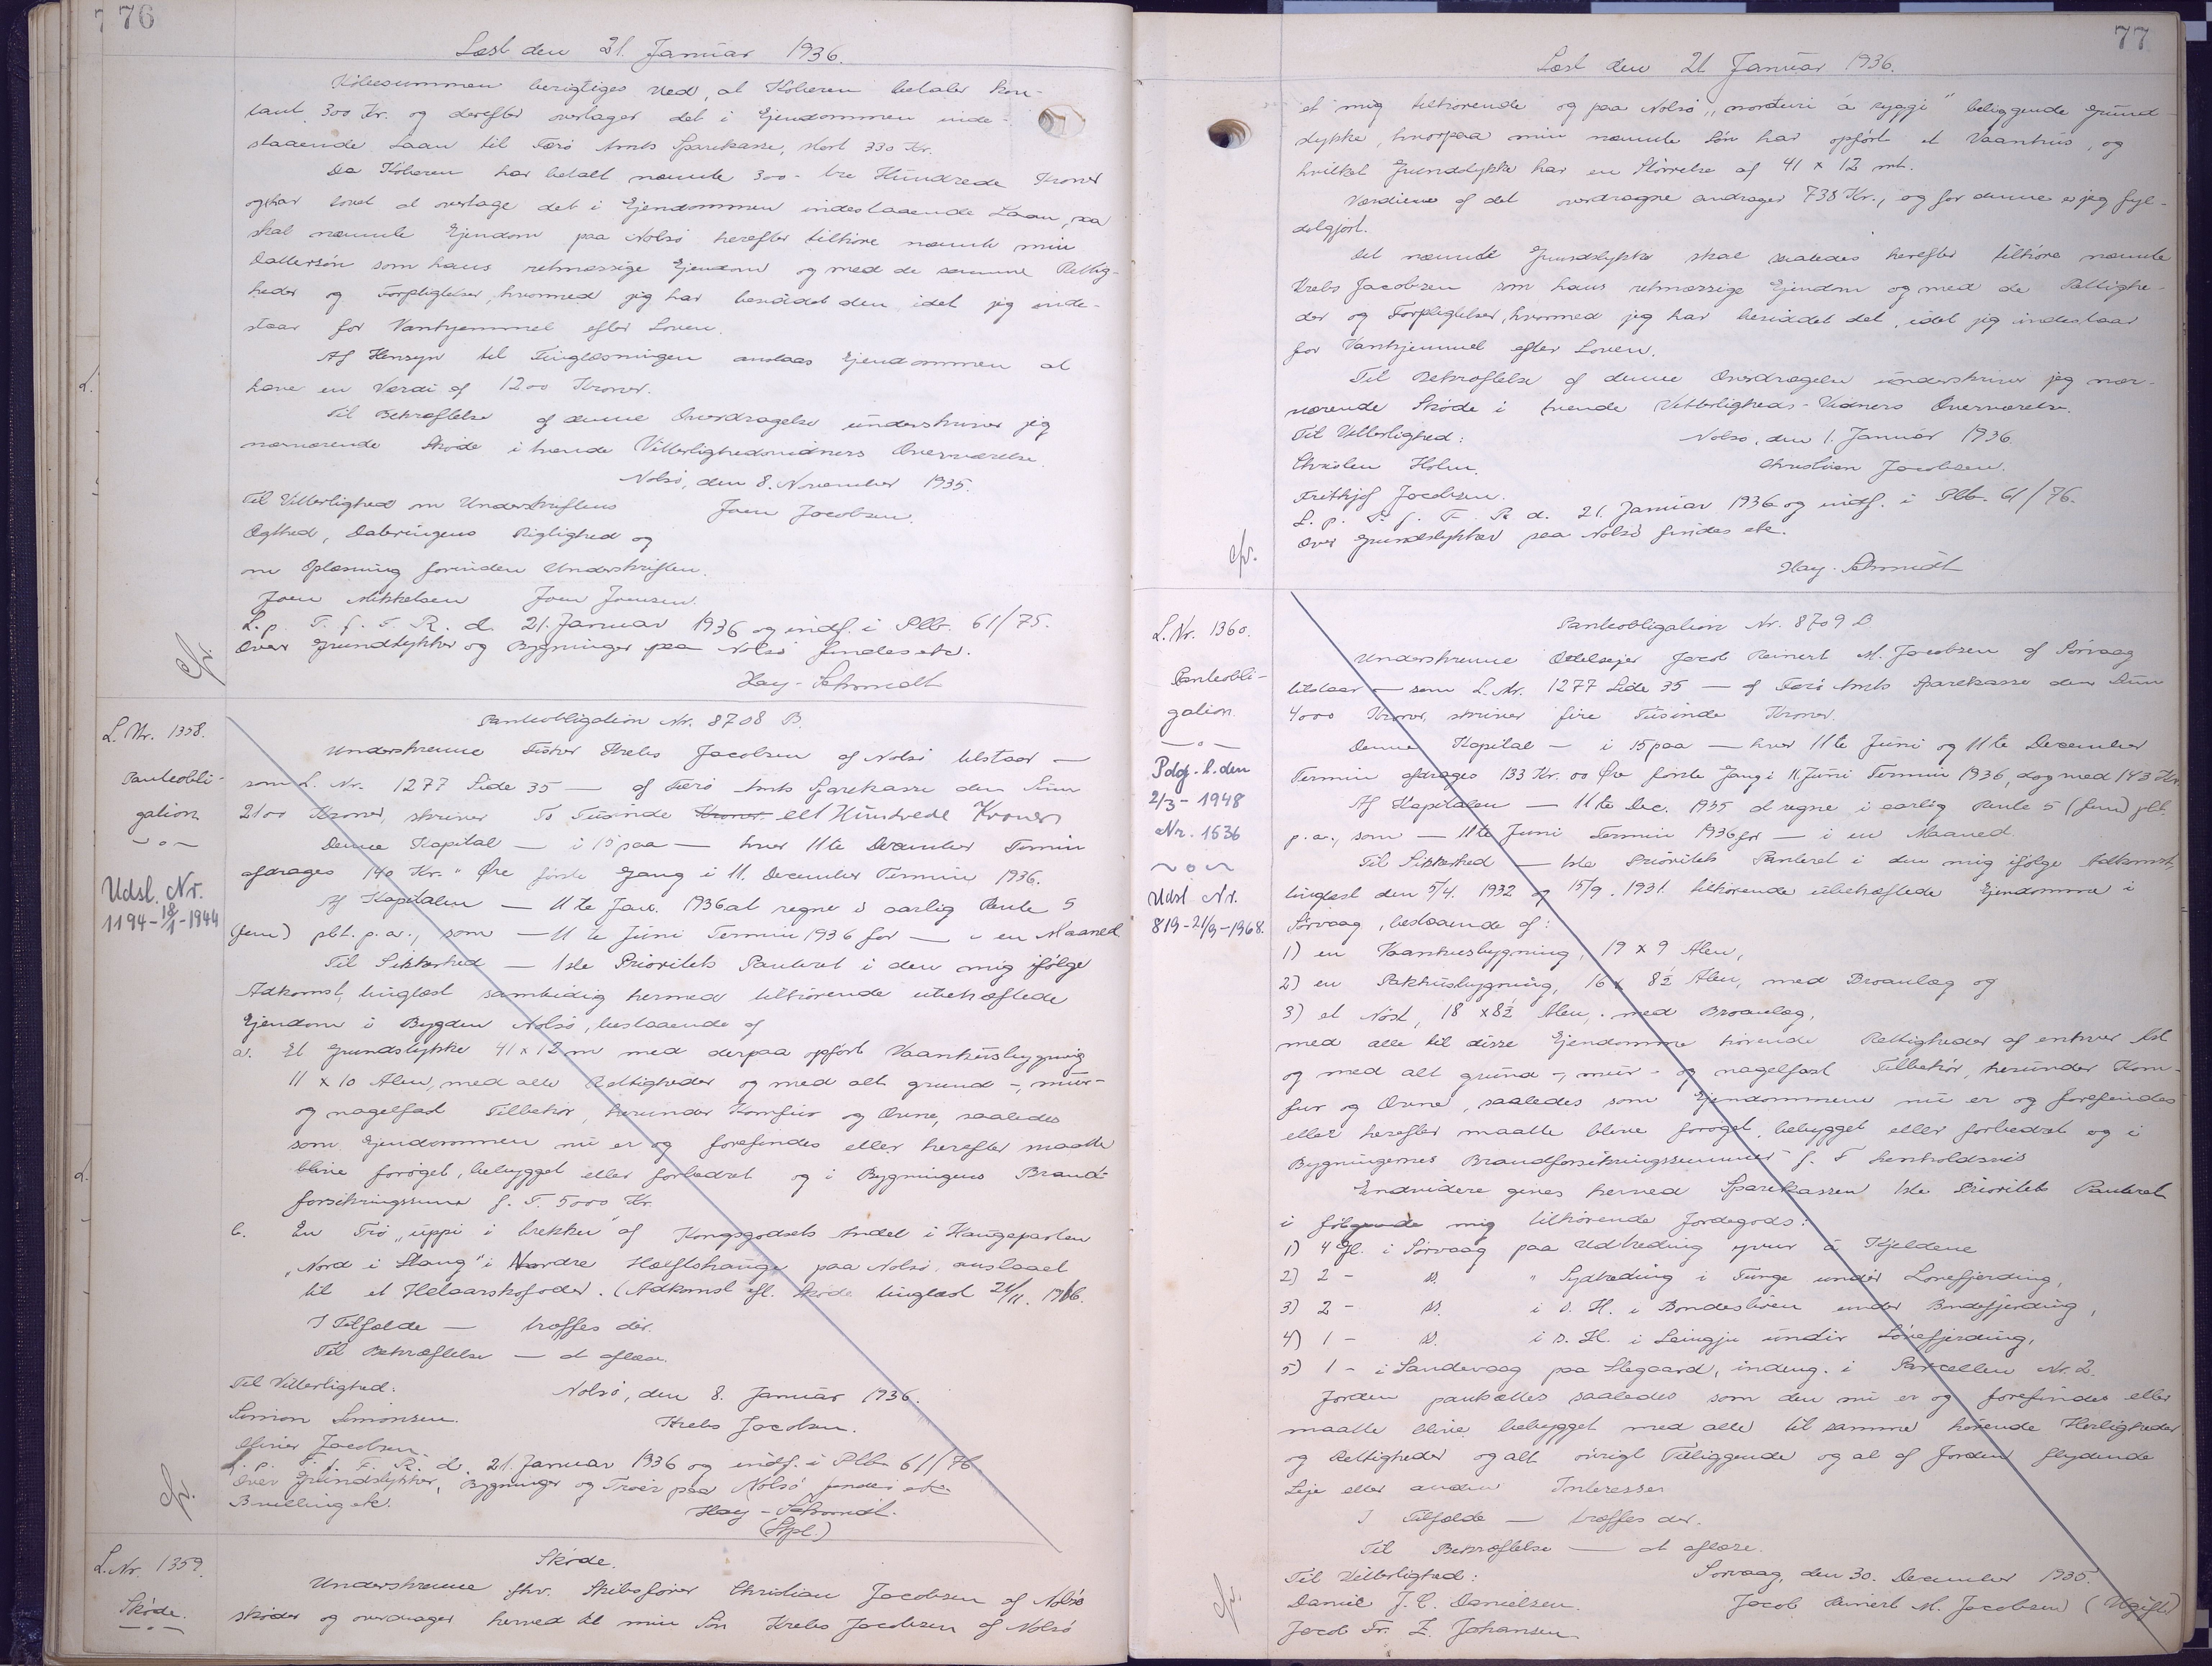 76
Læst den 21. Januar 1936.
Købesummen berigtiges ved, at Køberen betaler kon-
tant 300 Kr. og derefter overtager det i Ejendommen inde-
staaende Laan til Færø Amts Sparekasse, stort 330 Kr.
Da Køberen har betalt nævnte 300 - tre Hundrede Kroner
og har lovet at overtage det i Ejendommen indestaaende Laan, saa
skal nævnte Ejendom paa Nolsø herefter tilhøre nævnte min
Dattersøn som hans retmæssige Ejendom og med de samme Rettig-
heder og Forpligtelser, hvormed jeg har besiddet den, idet jeg inde-
staar for Vanhjemmel efter Loven.
Af Hensyn til Tinglæsningen anslaas Ejendommen at
have en Værdi af 1200 Kroner.
Til Bekræftelse af denne Overdragelse underskriver jeg
nærværende Skøde i tvende Vitterlighedsvidners Overværelse.
Nolsø, den 8. November 1935.
Til Vitterlighed om Underskriftens
Joen Jacobsen.
Ægthed, Dateringens Rigtighed og
om Oplæsning forinden Underskriften.
Joen Mikkelsen Joen Joensen.
L. p. T. f. F. R. d. 21. Januar 1936 og indf. i Plb. 61/75.
Over Grundstykker og Bygninger paa Nolsø findes etc.
Hay-Schmidt
L. Nr. 1358.
Panteobli-
gation
Udsl. Nr.
1194-18/1-1944
Panteobligation Nr. 8708 B.
Underskrevne Fisker Krebs Jacobsen af Nolsø tilstaar —
som L. Nr. 1277 Side 35 — af Færø Amts Sparekasse den Sum
2100 Kroner, skriver To Tusinde Kroner ett Hundrede Kroner
Denne Kapital — i 15 paa — hver 11te December Termin
afdrages 140 Kr. " Øre første Gang i 11. December Termin 1936.
Af Kapitalen — 11te Jan. 1936 at regne i aarlig Rente 5
(fem) pct. p. a., som — 11te Juni Termin 1936 for — i en Maaned
Til Sikkerhed — 1ste Prioritets Panteret i den mig ifølge
Adkomst, tinglæst samtidig hermed tilhørende ubehæftede
Ejendom i Bygden Nolsø, bestaaende af
a. Et Grundstykke 41 x 12 m med derpaa opført Vaanhusbygning
11 x 10 Alen, med alle Rettigheder og med alt grund-, mur-
og nagelfast Tilbehør, herunder Komfur og Ovne, saaledes
som Ejendommen nu er og forefindes eller herefter maatte
blive forøget, bebygget eller forbedret og i Bygningens Brand-
forsikringssum f. T. 5000 Kr.
b. En Trø „uppi i brekku" af Kongsgodsets Andel i Haugeparten
„Nord i Stang" i Nordre Hælftshauge paa Nolsø, anslaaet
til et Helaarskofoder. (Adkomst efl. Skøde tinglæst 21/11. 1916.
I Tilfælde — træffes der.
Til Bekræftelse — at aflæse.
Til Vitterlighed:
Nolsø, den 8. Januar 1936.
Simon Simonsen.
Krebs Jacobsen.
Jacobsen
L. p. T. f. F. R. d. 21. Januar 1936 og indf. i Plb. 61/76
Over Grundstykker, Bygninger og Trøer paa Nolsø findes etc.
Hay-Schmidt.
(Stpl.)
L. Nr. 1359.
Skøde.
Skøde.
Underskrevne fhv. Skibsfører Christian Jacobsen af Nolsø
skøder og overdrager herved til min Søn Krebs Jacobsen af Nolsø
77
Læst den 21 Januar 1936.
et mig tilhørende og paa Nolsø „norðuri á ryggi" beliggende Grund-
stykke, hvorpaa min nævnte Søn har opført et Vaanhus, og
hvilket Grundstykke har en Størrelse af 41 x 12 mt.
Værdien af det overdragne andrager 738 Kr., og for denne er jeg fyl-
destgjort.
Det nævnte Grundstykke skal saaledes herefter tilhøre nævnte
Krebs Jacobsen som hans retmæssige Ejendom og med de Rettighe-
der og Forpligtelser, hvormed jeg har besiddet det, idet jeg indestaar
for Vanhjemmel efter Loven.
Til Bekræftelse af denne Overdragelse underskriver jeg nær-
værende Skøde i tvende Vitterligheds-Vidners Overværelse.
Til Vitterlighed:
Nolsø, den 1. Januar 1936.
Christen Holm.
Christian Jacobsen.
Frithjof Jacobsen.
L. p. T. f. F. R. d. 21. Januar 1936 og indf. i Plb. 61/76.
Over Grundstykker paa Nolsø findes etc.
Hay-Schmidt
L. Nr. 1360.
Panteobli-
gation.
Pdgf. l. den
2/3-1948
Nr. 1636
Udsl Nr.
819-21/9-1968.
Panteobligation Nr. 8709 B
Underskrevne Odelsejer Jacob Reinert M. Jacobsen af Sørvaag
tilstaar — som L. Nr. 1277 Side 35 — af Færø Amts Sparekasse den Sum
4000 Kroner, skriver fire Tusinde Kroner.
Denne Kapital — i 15 paa — hver 11te Juni og 11te December
Termin afdrages 133 Kr. 00 Øre første Gang i 11. Juni Termin 1936, dog med 143 Kr.
Af Kapitalen — 11te Dec. 1935 at regne i aarlig Rente 5 (fem) pct.
p. a., som — 11te Juni Termin 1936 for — i en Maaned.
Til Sikkerhed — 1ste Prioritets Panteret i den mig ifølge Adkomst,
tinglæst den 5/4. 1932 og 15/9. 1931. tilhørende ubehæftede Ejendomme i
Sørvaag, bestaaende af:
1) en Vaanhusbygning, 19 x 9 Alen,
2) en Pakhusbygning, 16 x 8½ Alen, med Broanlæg og
3) et Nøst, 18 x 8½ Alen, med Broanlæg,
med alle til disse Ejendomme hørende Rettigheder af enhver Art
og med alt grund-, mur- og nagelfast Tilbehør, herunder Kom-
fur og Ovne, saaledes som Ejendommene nu er og forefindes
eller herefter maatte blive forøget, bebygget eller forbedret og i
Bygningernes Brandforsikringssummer f. T. henholdsvis
Endvidere gives herved Sparekassen 1ste Prioritets Panteret
i følgende mig tilhørende Jordegods:
1) 4 Gl. i Sørvaag paa Udtreding yvur á Kjeldene
2) 2 - s. " Sydtreding i Tunge undir Lonefjerding,
3) 2 - s. i s. H. i Bondestiven under Bondefjerding,
4) 1 - s. i s. H. i Leingju undir Lonefjerding,
5) 1 - i Sandevaag paa Slegaard, indeng. i Parcellen Nr. 2.
Jorden pantsættes saaledes som den nu er og forefindes eller
maatte blive bebygget med alle til samme hørende Herligheder
og Rettigheder og alt øvrigt Tilliggende og al af Jorden flydende
Leje eller anden Interesser
I Tilfælde — træffes der.
Til Bekræftelse — at aflæse.
Til Vitterlighed:
Sørvaag, den 30. December 1935.
Daniel J. C. Danielsen.
Jacob Reinert M. Jacobsen (Ugift)
Jacob Fr. Z. Johansen